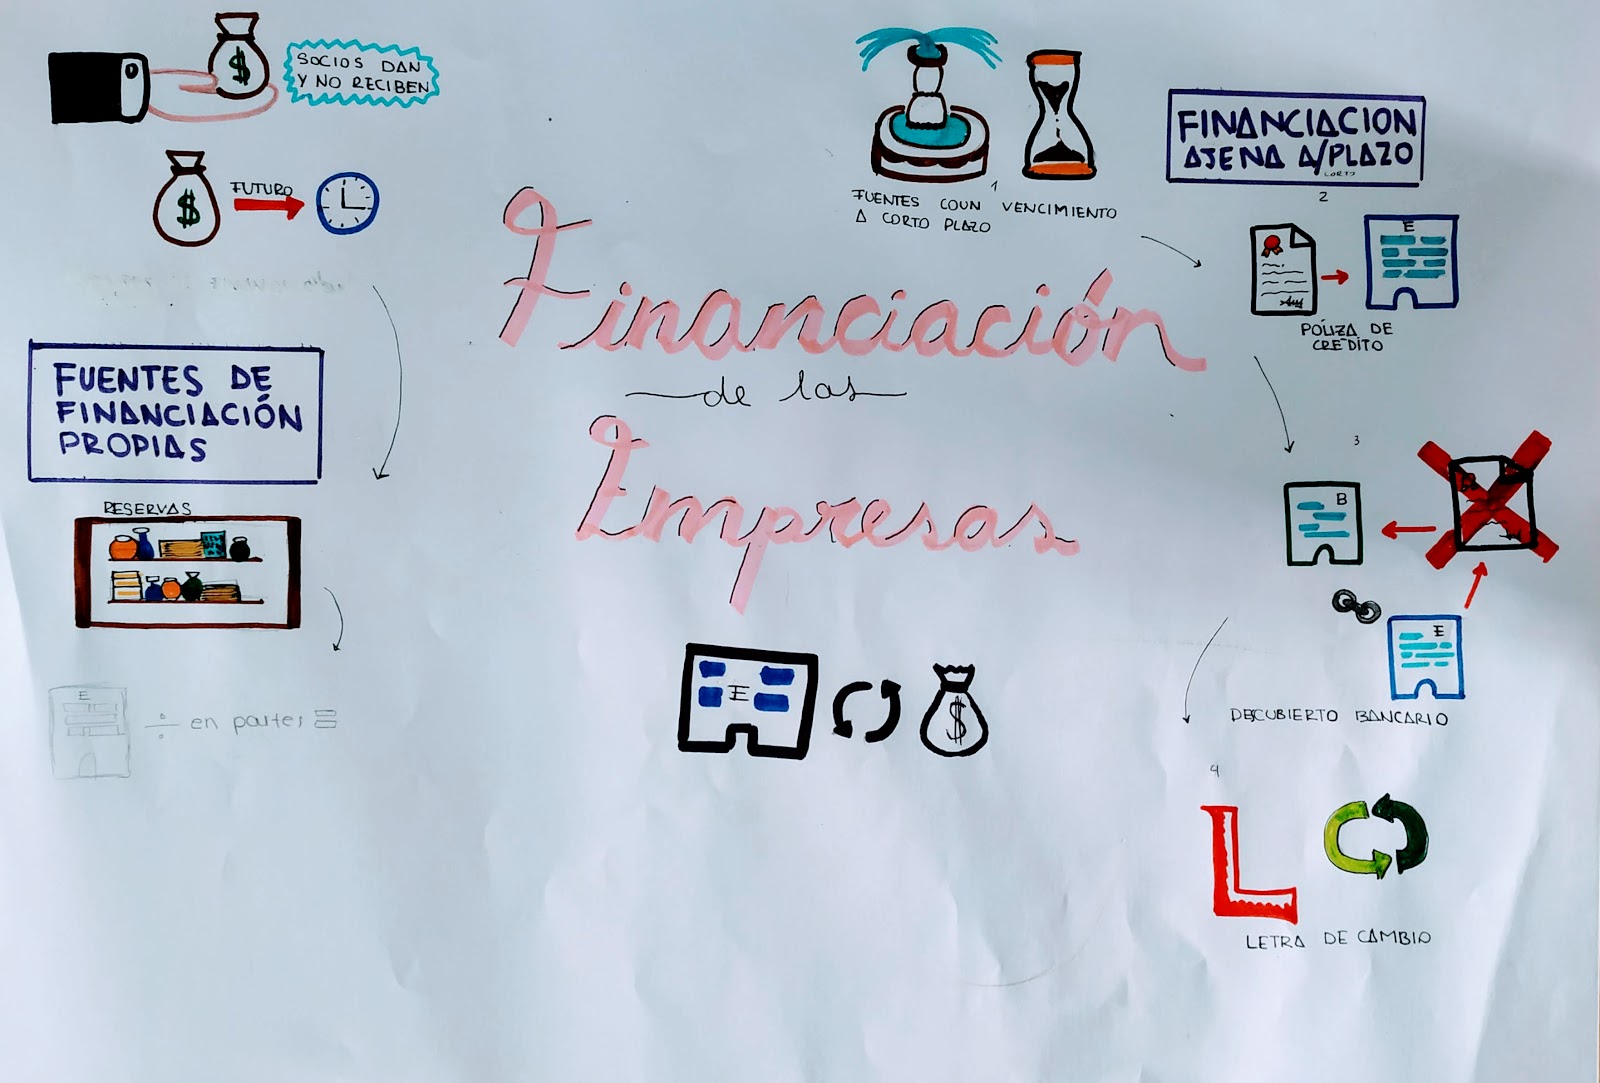 SOCIOS DAN
Y NO RECIBEN
$
$
FUTURO
FUENTES DE
FINANCIACIÓN
PROPIAS
RESERVAS
E
÷ en partes =
Financiación
de las
Empresas
E
$
1
FUENTES COUN VENCIMIENTO
A CORTO PLAZO
FINANCIACION
AJENA A/PLAZO
CORTO
2
E
PÓLIZA DE
CRÉDITO
3
B
E
DESCUBIERTO BANCARIO
4
L
LETRA DE CAMBIO